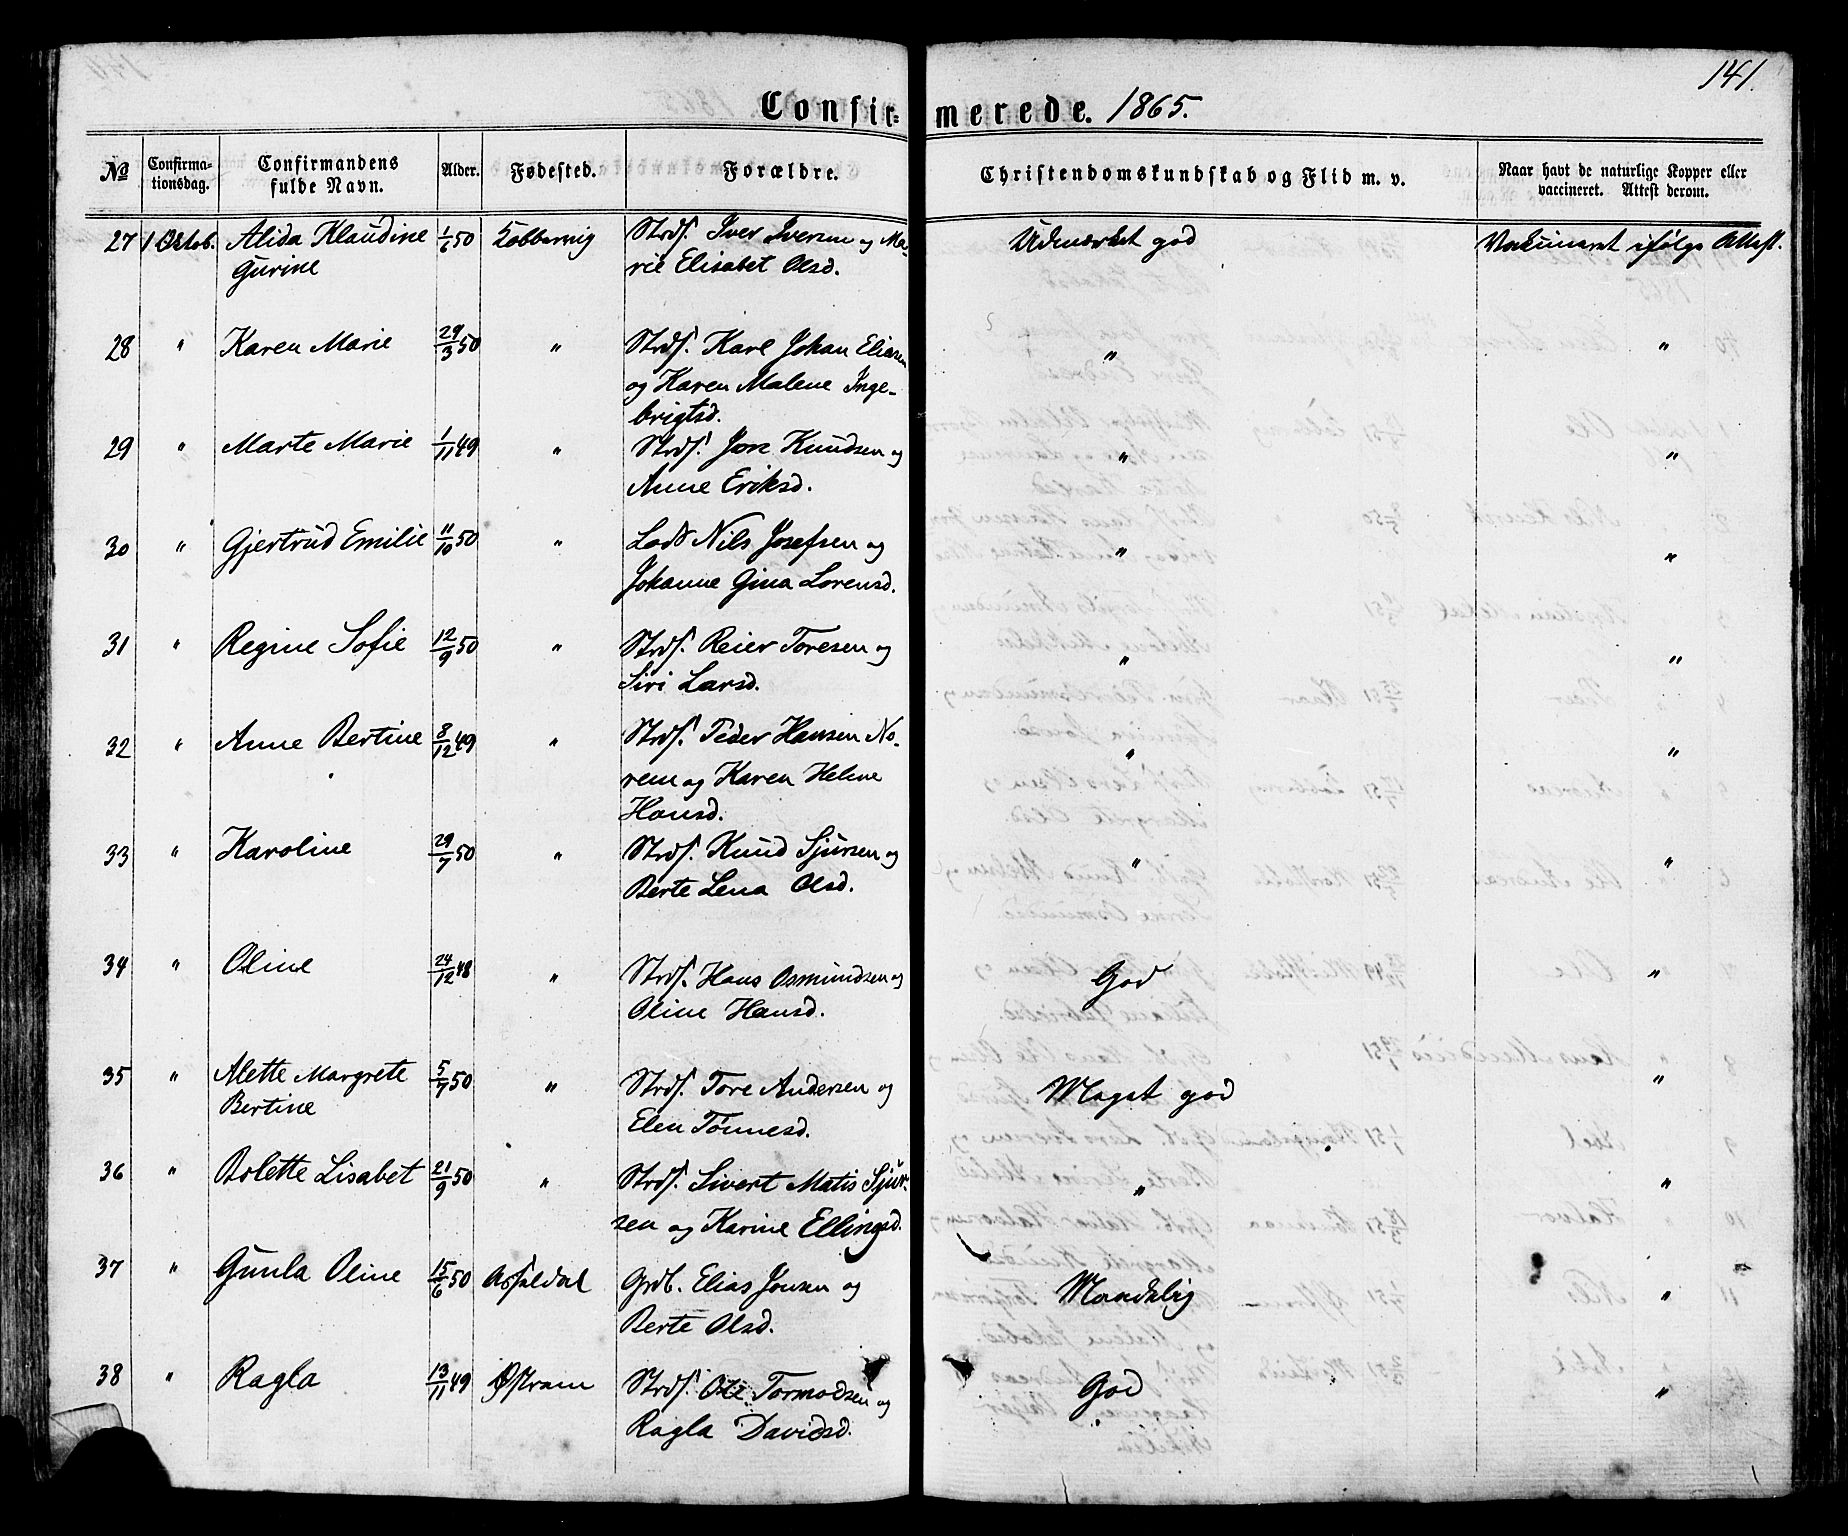 141.
Confirmerede. 1865.
No Confirmationsdag. Confirmandens fulde Navn. Alder. Fødested. Forældre. Christendomskundskab og Flid m. v. Naar havt de naturlige Kopper eller vaccineret. Attest derom.
27 1 Octob. Alida Klaudine 1/6 50 Strds. Iver Iversen og Ma- Udmærket god Vakcineret ifølge Attest.
Gurine rie Elisabet Olsd.
28 " Karen Marie 29/3 50 " Strds. Karl Johan Eliasen " "
og Karen Malene Inge-
brigtsd.
29 " Marte Marie 1/11 49 " Strds. Jon Knudsen og " "
Anne Eriksd.
30 " Gjertrud Emilie 11/10 50 " Lods Nils Josefsen og " "
Johanne Gina Lorensd.
31 " Regine Sofie 12/9 50 " Strds. Reier Toresen og " "
Siri Larsd.
32 " Anne Bertine 8/12 49 " Strds. Peder Hansen No- " "
rem og Karen Helene
Hansd.
33 " Karoline 29/7 50 " Strds. Knud Sjursen og " "
Berte Lena Olsd.
34 " Oline 24/12 48 " Strds. Hans Osmundsen og God "
Oline Hansd.
35 " Alette Margrete 5/7 50 " Strds. Tore Andersen og Meget god "
Bertine Elen Tønnesd.
36 " Bolette Lisabet 21/9 50 " Strds. Sivert Matis Sjur- " "
sen og Karine Ellingsd.
37 " Gunla Oline 15/6 50 Grdb. Elias Jonsen og Maadelig "
Berte Olsd.
38 " Ragla 13/11 49 Østrem Strds. Ole Tormodsen og God "
Ragla Davidsd.